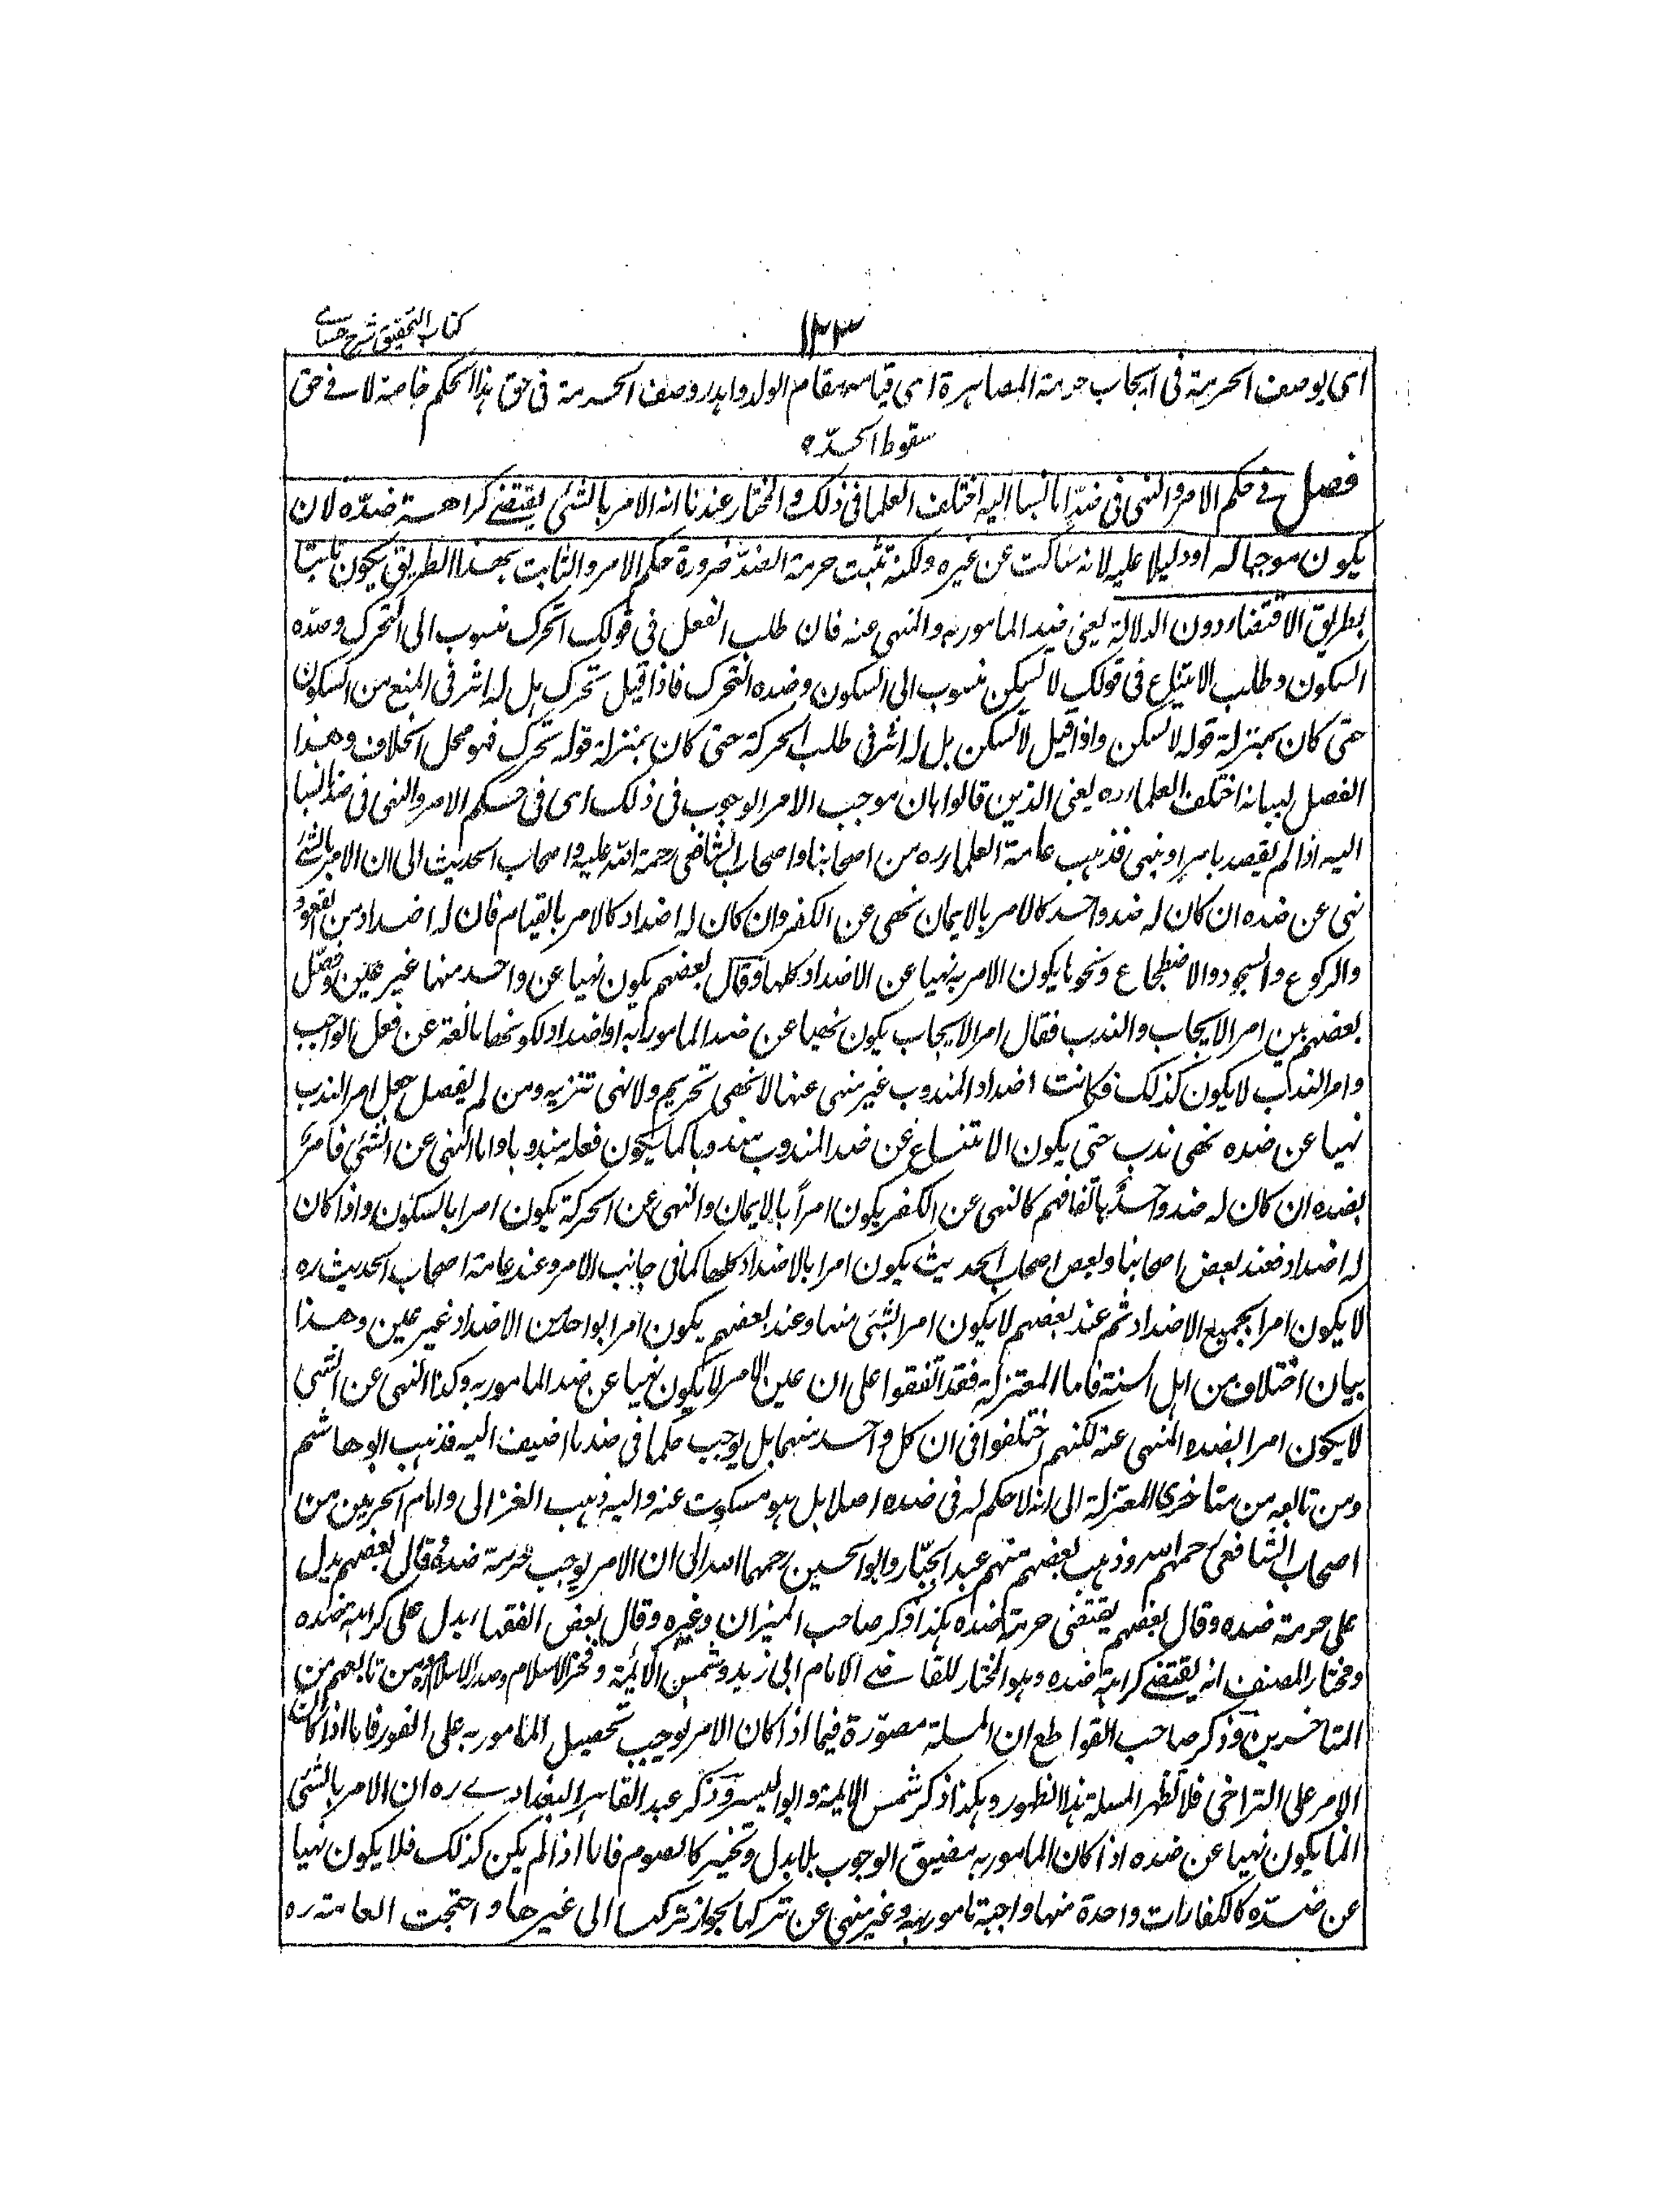 كتاب التحقيق شرح حسامى
١٣٣
اى بوصف الحرمة فى ايجاب حرمة المصاهرة اى قيامه مقام الولد واهدر وصف الحرمة فى حق هذا الحكم خاصة لا فى حق
سقوط الحد ه
فصل فى حكم الامر والنهى فى ضد ما نسبا اليه اختلف العلما فى ذلك والمختار عندنا ان الامر بالشئ يقتضى كراهة ضده لا ان
يكون موجبا له او دليلا عليه لانه ساكت عن غيره ولكنه تثبت حرمة الضد ضرورة حكم الامر والثابت بهذا الطريق يكون ثابتا
بطريق الاقتضاء دون الدلالة يعنى ضد المامور به والمنهى عنه فان طلب الفعل فى قولك تحرك منسوب الى التحرك وضده
السكون وطلب الامتناع فى قولك لا تسكن منسوب الى السكون وضده التحرك فاذا قيل تحرك هل له اثر فى المنع من السكون
حتى كان بمنزلة قوله لا تسكن واذا قيل لا تسكن هل له اثر فى طلب الحركة حتى كان بمنزلة قوله تحرك فهو محل الخلاف وهذا
الفصل لبيانه اختلف العلماء ره يعنى الذين قالوا بان موجب الامر الوجوب فى ذلك اى فى حكم الامر والنهى فى ضد ما نسبا
اليه اذا لم يقصد بامر او نهى فذهب عامة العلماء ره من اصحابنا واصحاب الشافعى رحمة الله عليه واصحاب الحديث الى ان الامر بالشئ
نهى عن ضده ان كان له ضد واحد كالامر بالايمان نهى عن الكفر وان كان له اضداد كالامر بالقيام فان له اضداد من القعود
والركوع والسجود والاضطجاع ونحوها يكون الامر به نهيا عن الاضداد كلها وقال بعضهم يكون نهيا عن واحد منها غير عين وفصل
بعضهم بين امر الايجاب والندب فقال امر الايجاب يكون نهيا عن ضد المامور به او اضداده لكونها مانعة عن فعل الواجب
وامر الندب لا يكون كذلك فكانت اضداد المندوب غير منهى عنها لا نهى تحريم ولا نهى تنزيه ومن لم يفصل جعل امر الندب
نهيا عن ضده نهى ندب حتى يكون الامتناع عن ضد المندوب مندوبا كما يكون فعله مندوبا واما النهى عن الشئ فامر
بضده ان كان له ضد واحد باتفاقهم كالنهى عن الكفر يكون امرا بالايمان والنهى عن الحركة يكون امرا بالسكون واذا كان
له اضداد فعند بعض اصحابنا وبعض اصحاب الحديث يكون امرا بالاضداد كلها كما فى جانب الامر وعند عامة اصحاب الحديث ره
لا يكون امرا بجميع الاضداد ثم عند بعضهم لا يكون امرا بشئ منها وعند بعضهم يكون امرا بواحد من الاضداد غير عين وهذا
بيان اختلاف من اهل السنة فاما المعتزلة فقد اتفقوا على ان عين الامر لا يكون نهيا عن ضد المامور به وكذا النهى عن الشئ
لا يكون امرا بضده المنهى عنه لكنهم اختلفوا فى ان كل واحد منهما هل يوجب حكما فى ضد ما اضيف اليه فذهب ابو هاشم
ومن تابعه من متاخرى المعتزلة الى انه لا حكم له فى ضده اصلا بل هو مسكوت عنه واليه ذهب الغزالى وامام الحرمين من
اصحاب الشافعى رحمهم الله وذهب بعضهم منهم عبد الجبار وابو الحسين رحمهما الله الى ان الامر يوجب حرمة ضده وقال بعضهم يدل
على حرمة ضده وقال بعضهم يقتضى حرمة ضده هكذا ذكر صاحب الميزان وغيره وقال بعض الفقهاء يدل على كراهة ضده
ومختار المصنف انه يقتضى كراهة ضده وهو المختار للقاضى الامام ابى زيد وشمس الائمة وفخر الاسلام وصدر الاسلام ره ومن تابعهم من
المتاخرين وذكر صاحب القواطع ان المسلة مصورة فيما اذا كان الامر يوجب تحصيل المامور به على الفور فاما اذا كان
الامر على التراخى فلا تظهر المسلة هذا الظهور وهكذا ذكر شمس الائمة وابو اليسر وذكر عبد القاهر البغدادى ره ان الامر بالشئ
انما يكون نهيا عن ضده اذا كان المامور به مضيق الوجوب بلا بدل وتخيير كالصوم فاما اذا لم يكن كذلك فلا يكون نهيا
عن ضده كالكفارات واحدة منها واجبة مامور بها وغير منهى عن تركها لجواز تركها الى غيرها واحتجت العامة ره